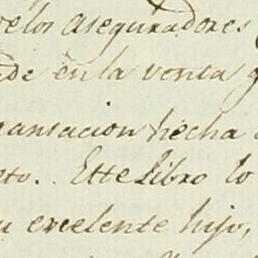 velos aseguradores
nde en la venta q
ransacion hecha
sto. Este libro lo
u excelente hijo,